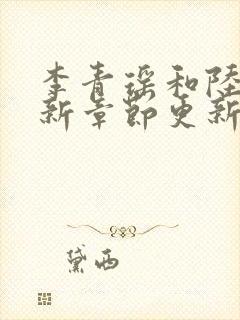 李青瑶和陸
新章節更新
黛西